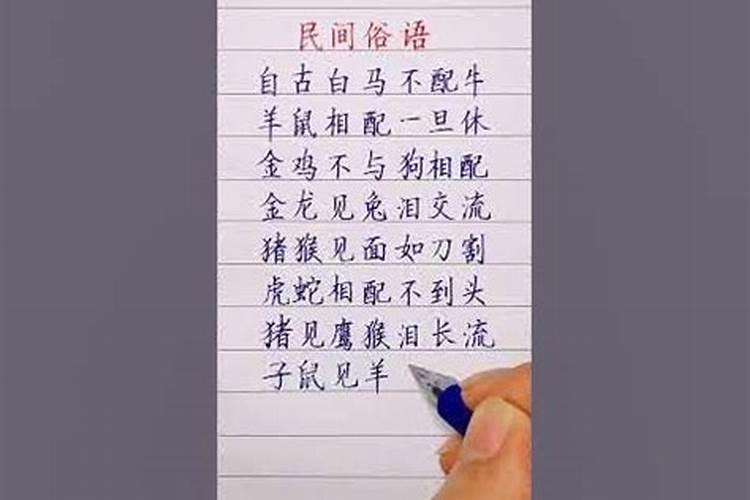 民间俗语
自古白马不配牛
羊鼠相配一旦休
金鸡不与狗相配
金龙见兔泪交流
猪猴见面如刀割
虎蛇相配不到头
猪见鹰猴泪长流
子鼠见羊